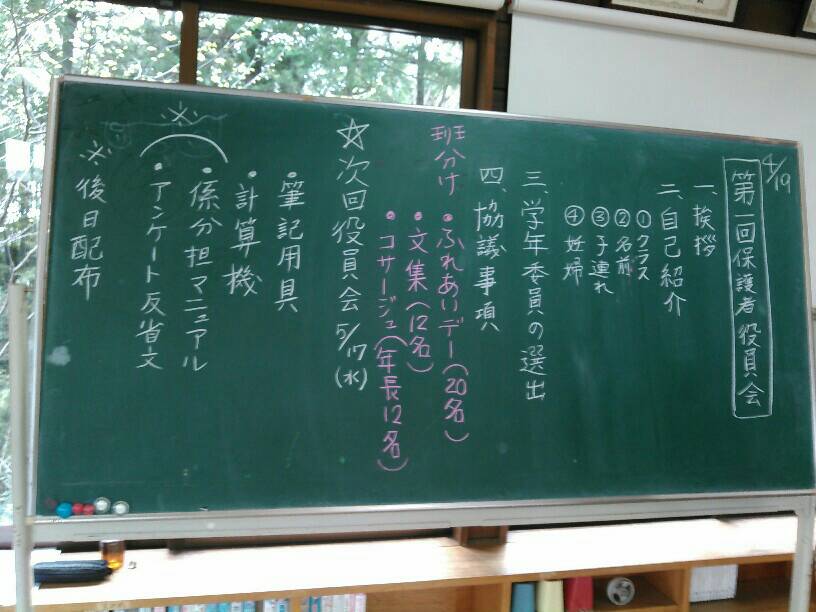 4/19
第一回保護者役員会
一、挨拶
二、自己紹介
①クラス
②名前
③子連れ
④妊婦
三、学年委員の選出
四、協議事項
班分け
・ふれあいデー(20名)
・文集(12名)
・コサージュ(年長12名)
☆次回役員会5/17(水)
・筆記用具
・計算機
※
・係分担マニュアル
・アンケート反省文
※後日配布